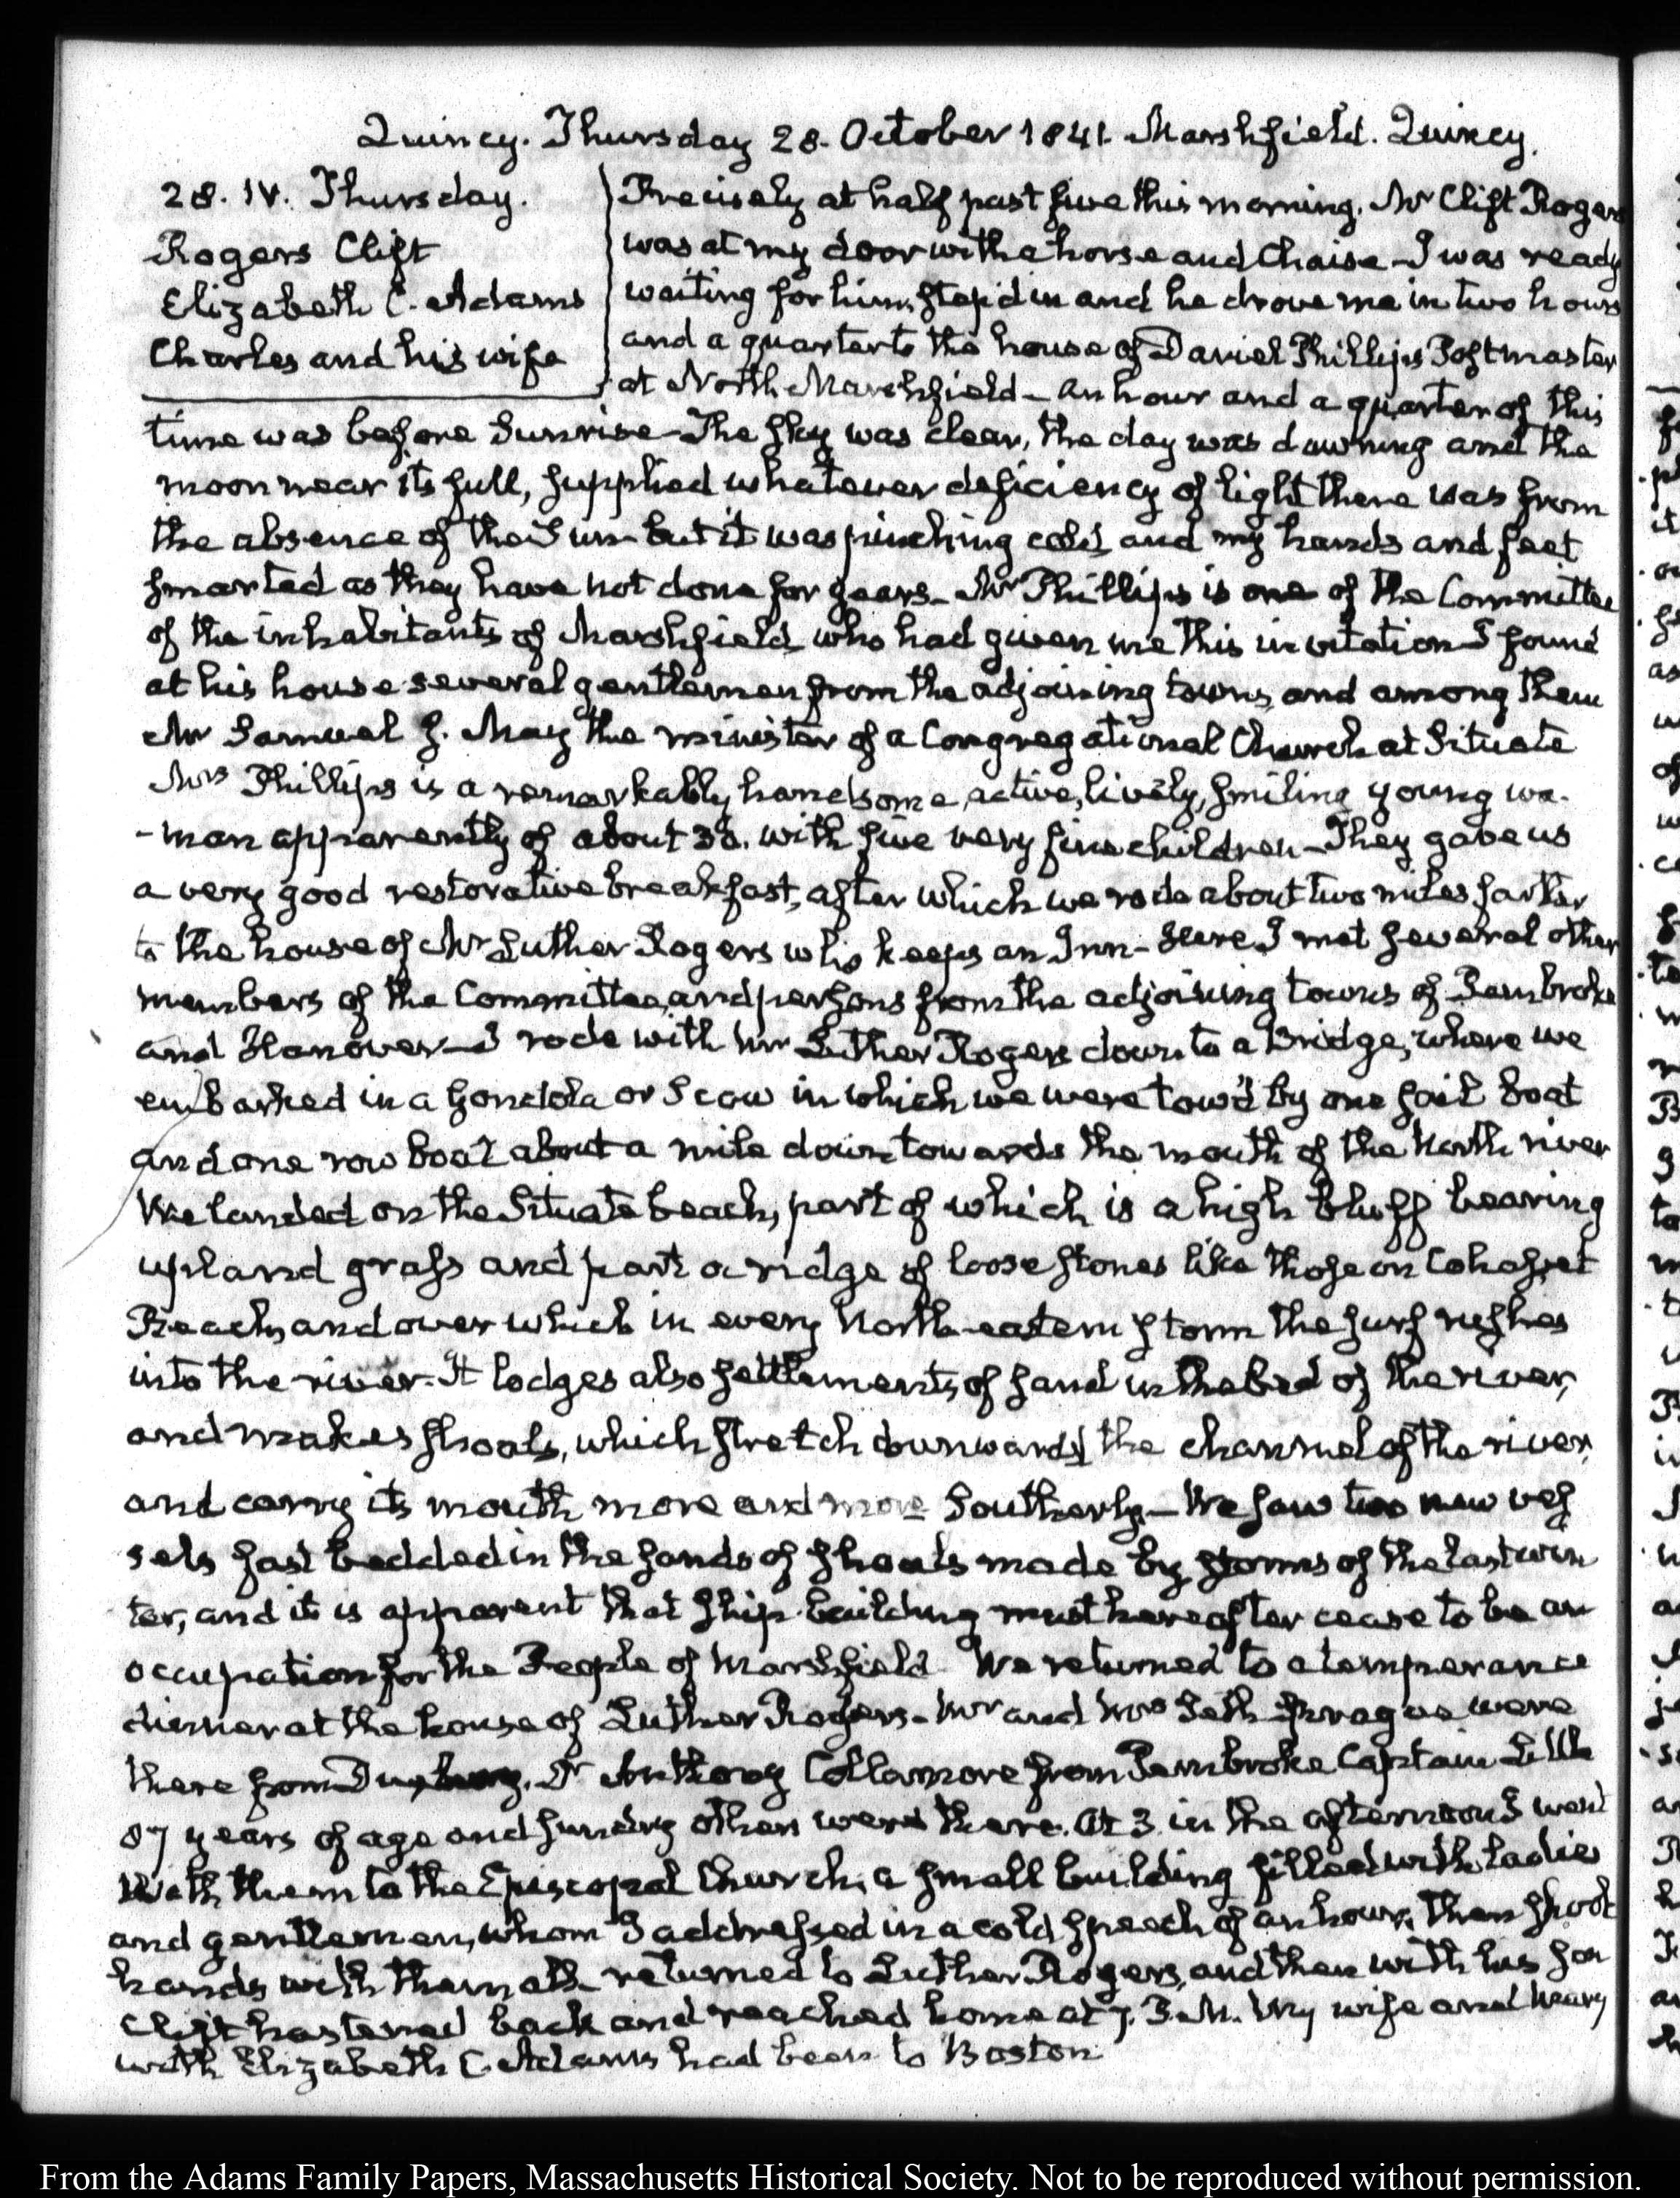 Quincy. Thursday 28. October 1841. Marshfield. Quincy.
28. IV. Thursday.
Rogers Clift
Elizabeth C. Adams
Charles and his wife
Precisely at half past five this morning, Mr Clift Rogers
was at my door with a horse and Chaise – I was ready
waiting for him, step'd in and he drove me in two hours
and a quarter to the house of Daniel Phillips Postmaster
at North Marshfield – an hour and a quarter of this
time was before Sunrise – The sky was clear, the day was dawning and the
moon near its full, supplied whatever deficiency of light there was from
the absence of the Sun – but it was pinching cold and my hands and feet
smarted as they have not done for years – Mr Phillips is one of the Committee
of the inhabitants of Marshfield who had given me this invitation I found
at his house several gentlemen from the adjoining towns, and among them
Mr Samuel J. May the minister of a Congregational Church at Situate
Mrs Phillips is a remarkably handsome, active, lively, smiling young wo-
-man apparently of about 30. with five very fine children – They gave us
a very good restorative breakfast, after which we rode about two miles farther
to the house of Mr Luther Rogers who keeps an Inn – Here I met several other
members of the Committee, and persons from the adjoining towns of Pembroke
and Hanover – I rode with Mr Luther Rogers down to a Bridge, where we
embarked in a gondola or Scow in which we were tow'd by one sail boat
and one row boat about a mile down towards the mouth of the North river
We landed on the Situate beach, part of which is a high bluff bearing
upland grass and part a ridge of loose stones like those on Cohasset
Beach, and over which in every North-eastern storm the surf rushes
into the river. It lodges also settlements of sand in the bed of the river,
and makes shoals, which stretch downwards the channel of the river,
and carry its mouth more and more Southerly – We saw two new ves
sels fast bedded in the sands of shoals made by storms of the last win
ter, and it is apparent that ship-building must hereafter cease to be an
occupation for the People of Marshfield We returned to a temperance
dinner at the house of Luther Rogers – Mr and Mrs Seth Sprague were
there from Duxbury. Dr Anthony Collamore from Pembroke Captain Little
87 years of age and sundry others were there. At 3 in the afternoon I went
with them to the Episcopal Church, a small building filled with ladies
and gentlemen, whom I addressed in a cold speech of an hour; then shook
hands with them all – returned to Luther Rogers, and then with his son
Clift hastened back and reached home at 7. P.M. My wife and Mary
with Elizabeth C. Adams had been to Boston
From the Adams Family Papers, Massachusetts Historical Society. Not to be reproduced without permission.